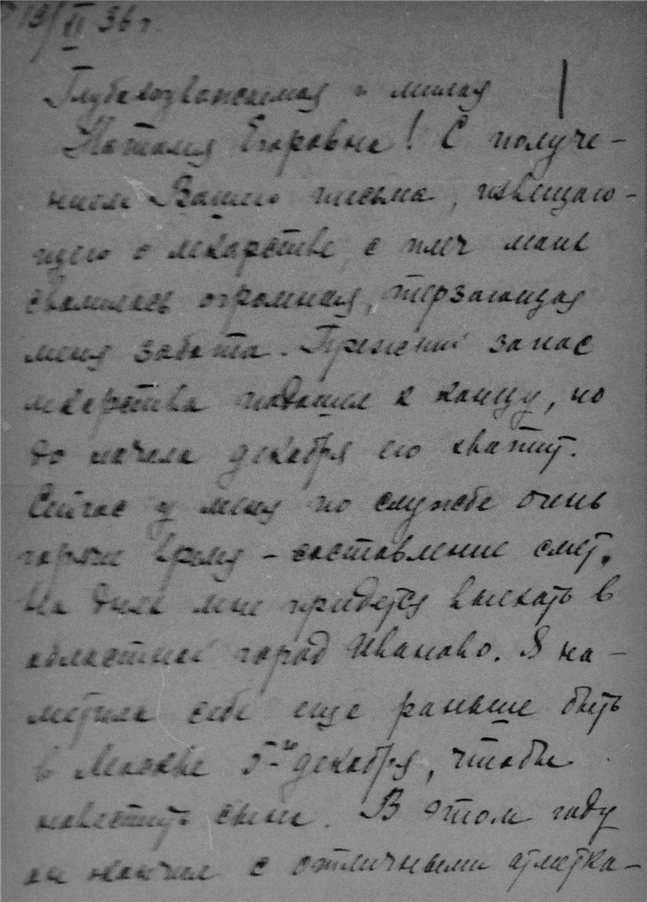 19/XI 36 г.
Глубокоуважаемая и милая
Наталия Егоровна! С получе-
нием Вашего письма, извещаю-
щего о лекарстве, с плеч моих
свалилась огромная, терзающая
меня забота. Прежний запас
лекарства подошел к концу, но
до начала декабря его хватит.
Сейчас у меня по службе очень
горячее время – составление смет.
На днях мне придется выехать в
областной город Иваново. Я на-
метила себе еще раньше быть
в Москве 5-го декабря, чтобы
навестить сына. В этом году
он кончил с отличными отметка-